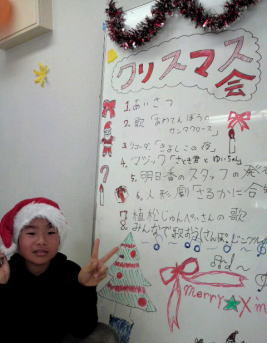 クリスマス
会
1. あいさつ
2. 歌「あわてんぼうの
サンタクロース」
3. リコーダー「きよしこの夜」
4. マジック「さとき君と ゆいちゃん」
5. 明日香のスタッフの発
6. 人形劇「さるかに合
7 植松じゅんぺいさんの歌
8 みんなで歌おう「さんぽ」
merry ☆ X